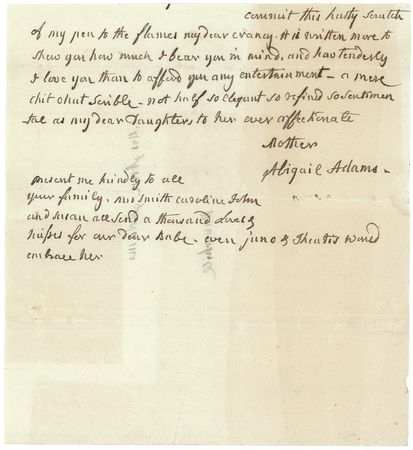 commit this hasty Scratch
of my pen to the flames my dear it is written more to
shew you how much I bear you in mind, and how tenderly
I love you than to afford you any entertainment - a mere
chit chat Scrible - not half so Elegant so refind so Sentimen
tal as my dear Daughters to her ever affectionate
Mother
Abigail Adams -
present me kindly to all
your family. Mrs Smith caroline John
and Susan all Send a thousand Loves &
kisses for our dear Babe - even juno & would
embrace her